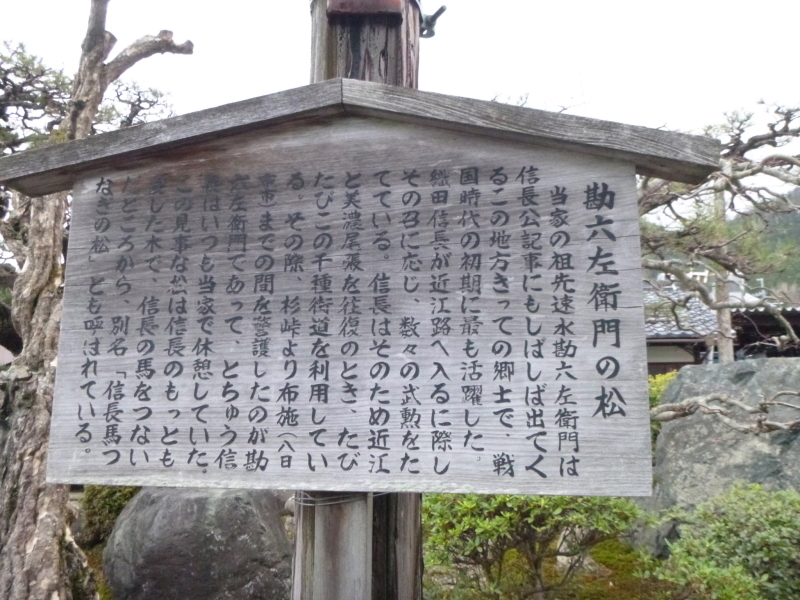 勘六左衛門の松
当家の祖先速水勘六左衛門は
信長公記事にもしばしば出てく
るこの地方きっての郷士で、戦
国時代の初期に最も活躍した。
織田信長が近江路へ入るに際し
その召に応じ、数々の武勲をた
てている。信長はそのため近江
と美濃尾張を往復のとき、たび
たびこの千種街道を利用してい
る。その際、杉峠より布施(八日
市)までの間を警護したのが勘
六左衛門であって、とちゅう信
長はいつも当家で休憩していた。
この見事な松は信長のもっとも
愛した木で、信長の馬をつない
だところから、別名「信長馬つ
なぎの松」とも呼ばれている。